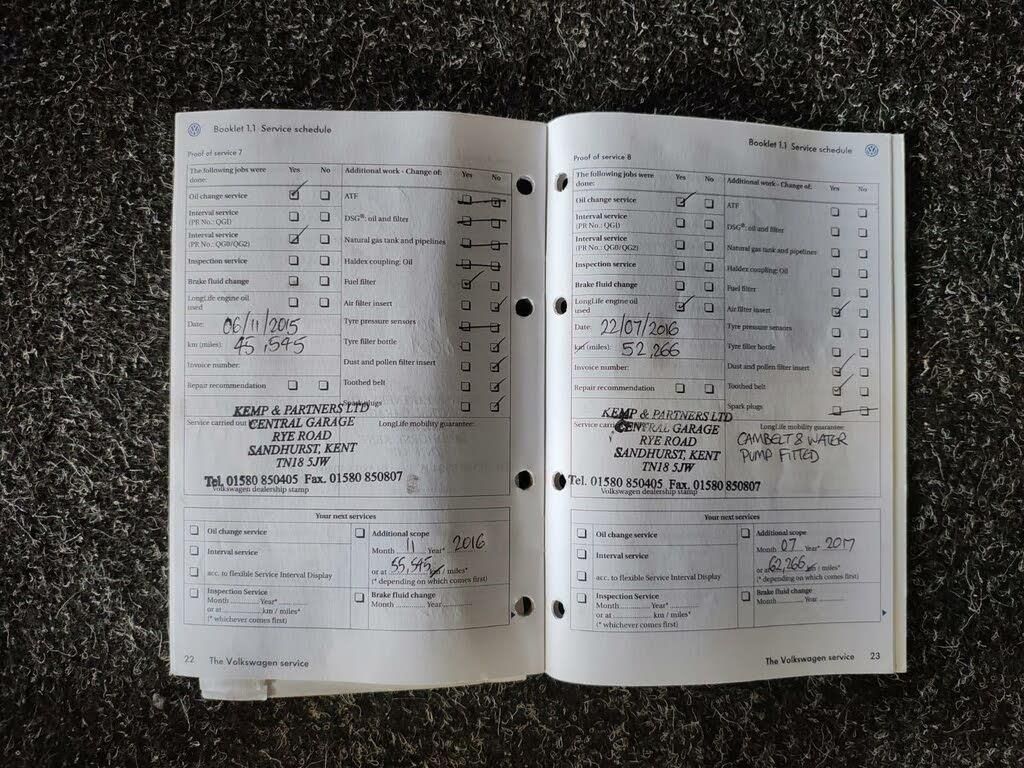 Booklet 1.1 Service schedule
Proof of service 7
The following jobs were done: Yes No
Additional work - Change of: Yes No
Oil change service
ATF
Interval service
(PR No.: QG1)
DSG®: oil and filter
Interval service
(PR No.: QG0/QG2)
Natural gas tank and pipelines
Inspection service
Haldex coupling: Oil
Brake fluid change
Fuel filter
LongLife engine oil
used
Air filter insert
Date: 06/11/2015
Tyre pressure sensors
km (miles): 45,545
Tyre filler bottle
Invoice number:
Dust and pollen filter insert
Repair recommendation
Toothed belt
Spark plugs
KEMP & PARTNERS LTD
Service carried out
CENTRAL GARAGE
LongLife mobility guarantee:
RYE ROAD
SANDHURST, KENT
TN18 5JW
Tel. 01580 850405 Fax. 01580 850807
Volkswagen dealership stamp
Your next services
Oil change service
Additional scope
Month 11 Year* 2016
Interval service
or at 55,545 km / miles*
acc. to flexible Service Interval Display
(* depending on which comes first)
Inspection Service
Month Year*
or at km / miles*
(* whichever comes first)
Brake fluid change
Month Year
22 The Volkswagen service
Booklet 1.1 Service schedule
Proof of service 8
The following jobs were
done: Yes No
Additional work - Change of: Yes No
Oil change service
ATF
Interval service
(PR No.: QG1)
DSG®: oil and filter
Interval service
(PR No.: QG0/QG2)
Natural gas tank and pipelines
Inspection service
Haldex coupling: Oil
Brake fluid change
Fuel filter
LongLife engine oil
used
Air filter insert
Date: 22/07/2016
Tyre pressure sensors
km (miles): 52,266
Tyre filler bottle
Invoice number:
Dust and pollen filter insert
Repair recommendation
Toothed belt
Spark plugs
KEMP & PARTNERS LTD
Service
CENTRAL GARAGE
LongLife mobility guarantee:
RYE ROAD
SANDHURST, KENT
TN18 5JW
CAMBELT & WATER
PUMP FITTED
Tel. 01580 850405 Fax. 01580 850807
Volkswagen dealership stamp
Your next services
Oil change service
Additional scope
Month 07 Year* 2017
Interval service
or at 62,266 km / miles*
acc. to flexible Service Interval Display
(* depending on which comes first)
Inspection Service
Month Year*
or at km / miles*
(* whichever comes first)
Brake fluid change
Month Year
The Volkswagen service 23